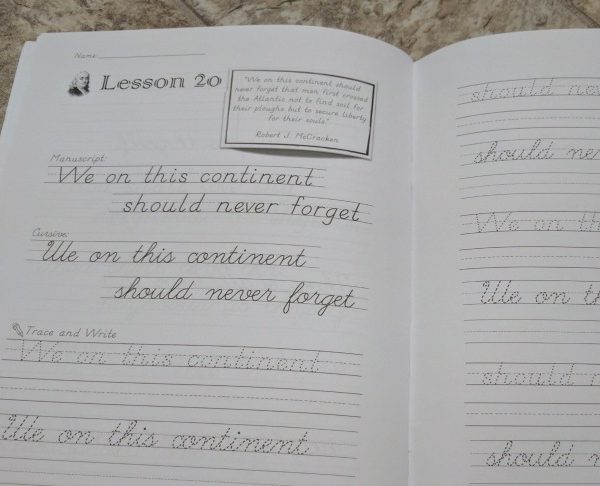 Name:
Lesson 20
"We on this continent should
never forget that men first crossed
the Atlantic not to find soil for
their ploughs but to secure liberty
for their souls."
Robert J. McCracken
Manuscript:
We on this continent
should never forget
Cursive:
We on this continent
should never forget
Trace and Write
We on this continent
We on this continent
should nev
should nev
We on th
We on th
should n
should n